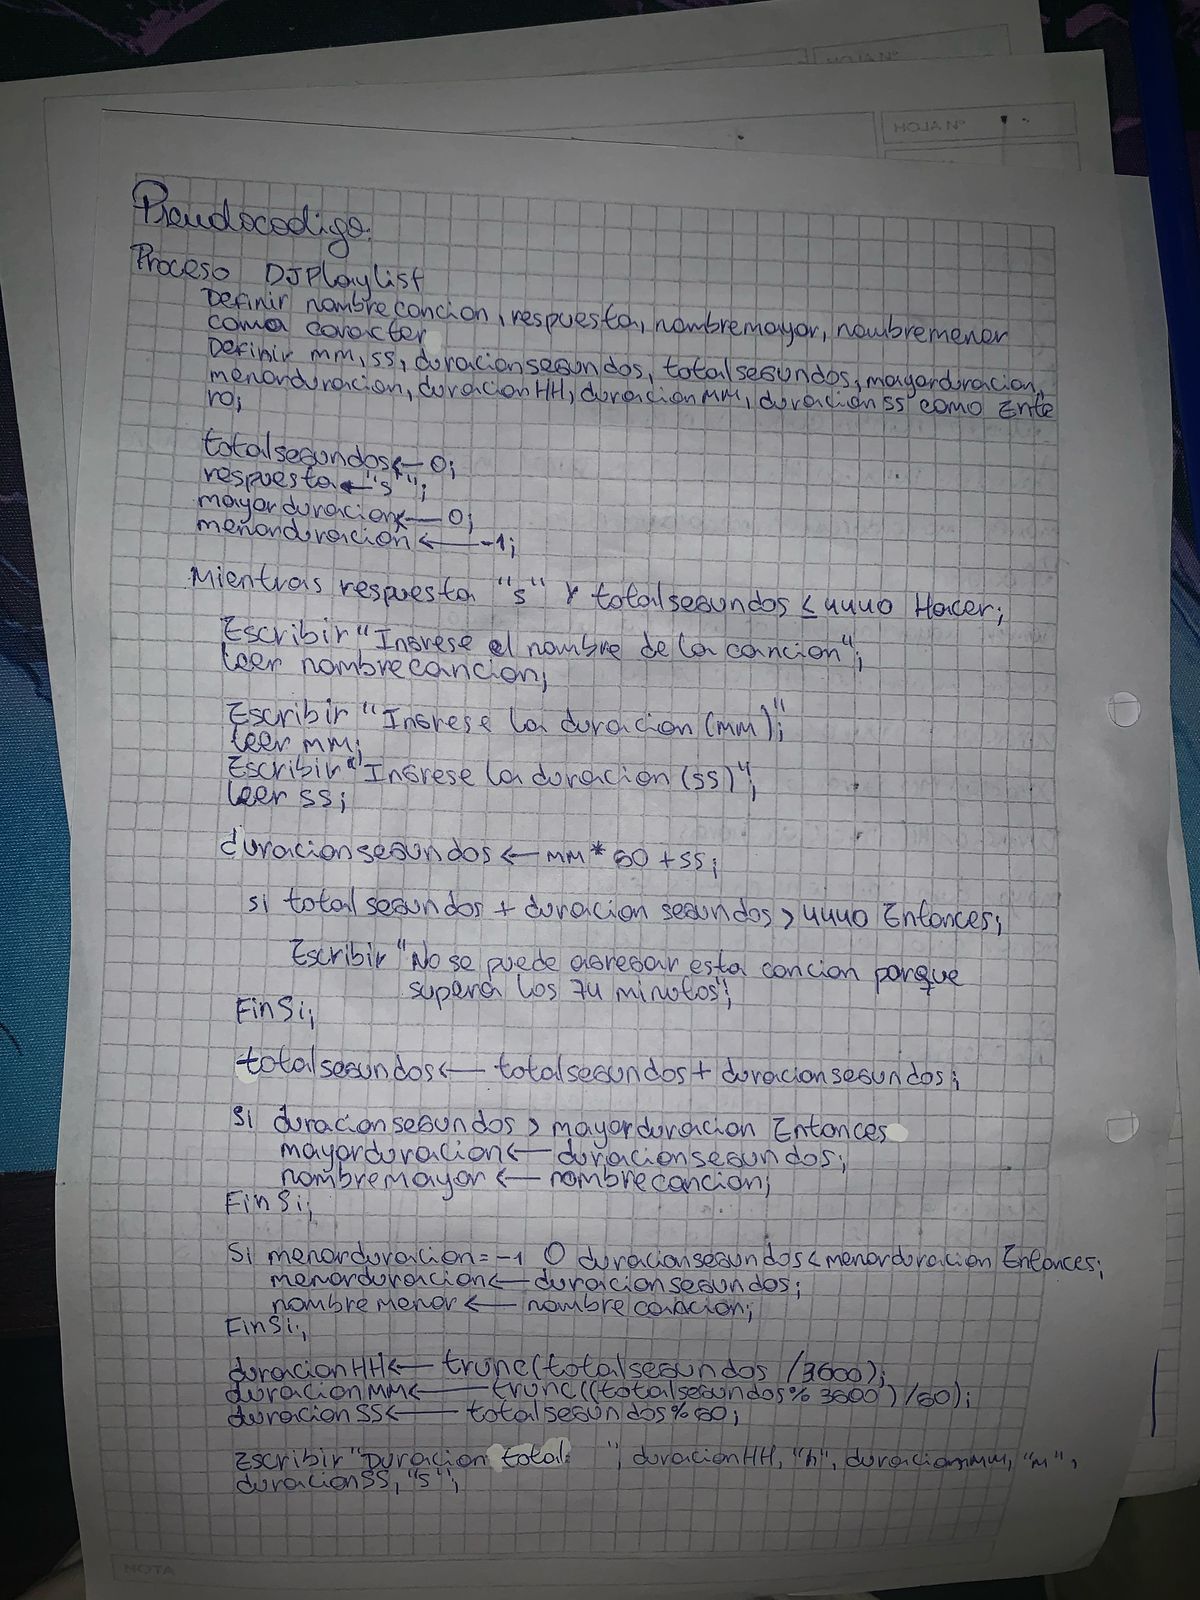 Nº ALOH
HOJA Nº
Pseudocodigo:
Proceso DJPlaylist
Definir nombrecancion, respuesta, nombremayor, nombremenor
como caracter
Definir mm, ss, duracionsegundos, totalsegundos, mayorduracion,
menorduracion, duracionHH, duracionMM, duracionSS como Ente
ro;
totalsegundos ← 0;
respuesta ← "s";
mayorduracion ← 0;
menorduracion ← -1;
Mientras respuesta "s" Y totalsegundos ≤ 4440 Hacer;
Escribir "Ingrese el nombre de la cancion";
leer nombrecancion;
Escribir "Ingrese la duracion (MM)";
leer mm;
Escribir "Ingrese la duracion (ss)";
leer ss;
duracionsegundos ← mm * 60 + ss;
si totalsegundos + duracion segundos > 4440 Entonces;
Escribir "No se puede agregar esta cancion porque
supera los 74 minutos";
FinSi;
totalsegundos ← totalsegundos + duracionsegundos;
Si duracionsegundos > mayorduracion Entonces
mayorduracion ← duracionsegundos;
nombremayor ← nombrecancion;
FinSi;
Si menorduracion = -1 O duracionsegundos < menorduracion Entonces;
menorduracion ← duracionsegundos;
nombremenor ← nombrecancion;
FinSi;
duracionHH ← trunc(totalsegundos /3600);
duracionMM ← trunc((totalsegundos % 3600) /60);
duracionSS ← totalsegundos % 60;
Escribir "Duracion total: ", duracionHH, "h", duracionMM, "m",
duracionSS, "s";
NOTA